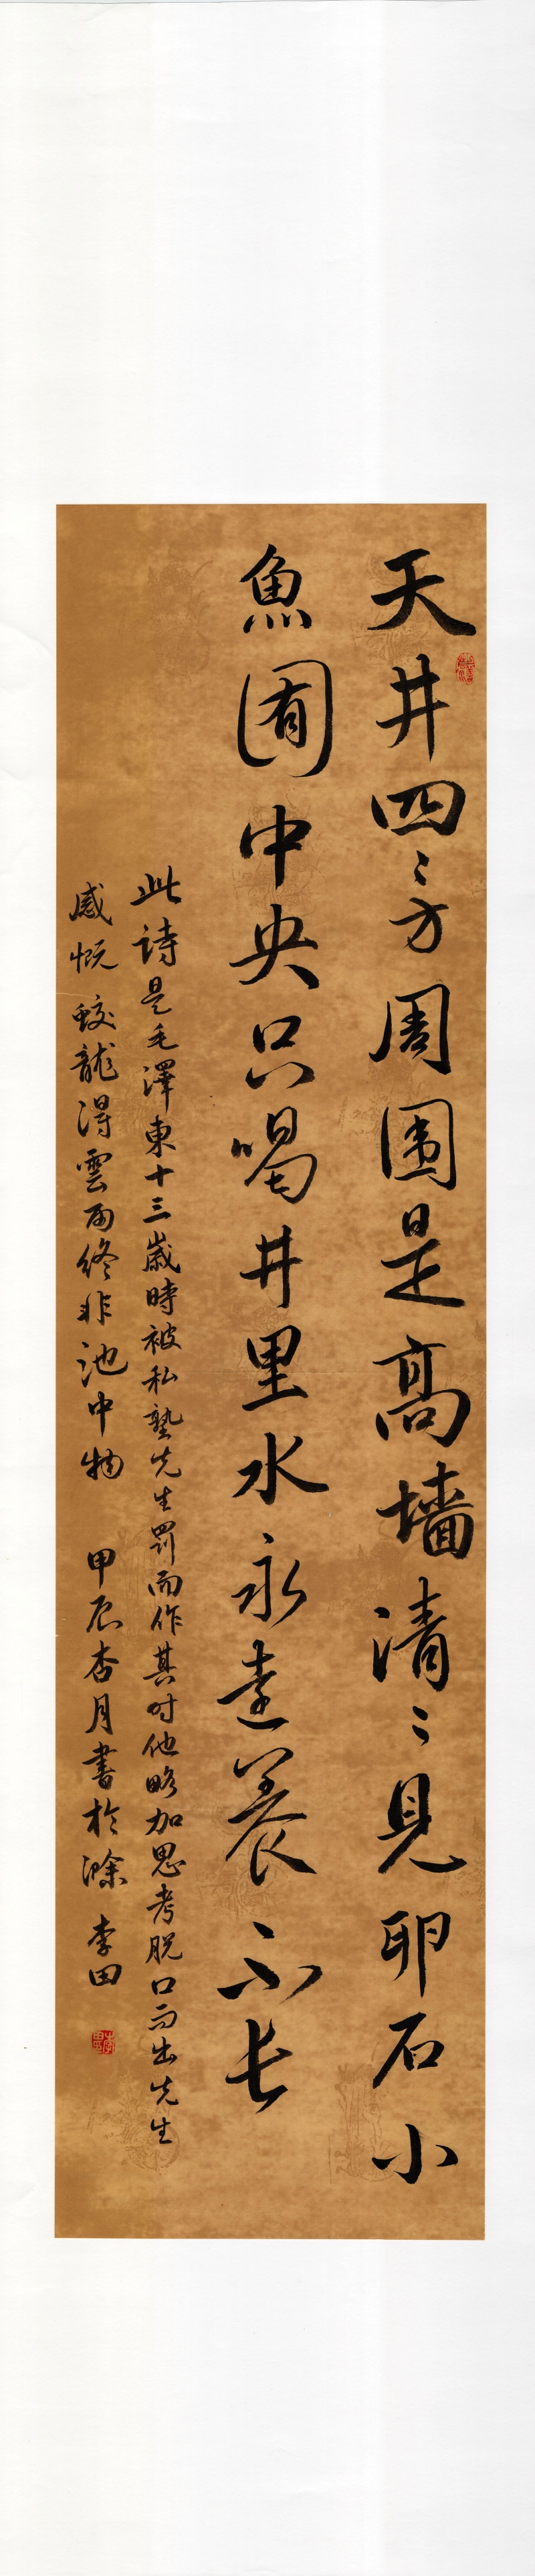 天井四〻方周围是高墙清〻見卵石小
魚囿中央只喝井里水永遠養不长
此詩是毛澤東十三歲時被私塾先生罰而作其时他略加思考脱口而出先生
感慨蛟龍得雲雨终非池中物 甲辰杏月書於滁 李田